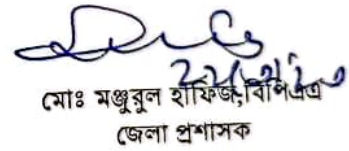 মোঃ মঞ্জুরুল হাফিজ,বিপিএএ
জেলা প্রশাসক